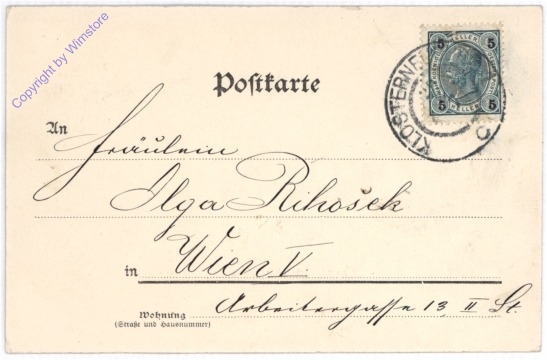 Copyright by Wimstore
5 5
HELLER
5 5
KLOSTERNEU
Postkarte
An
Fräulein
Olga Rikošek
in Wien V.
Arbeitergasse 13, II St.
Wohnung
(Straße und Hausnummer)